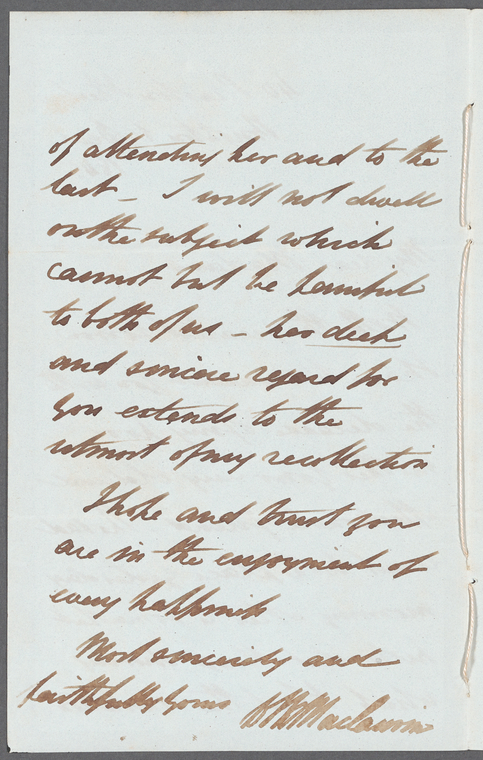 of attending her and to the
last _ I will not dwell
on the subject which
cannot but be painful
to both of us _ her deep
and sincere regard for
you extends to the
utmost of my recollection
I hope and trust you
are in the enjoyment of
every happiness
Most sincerely and
faithfully yours